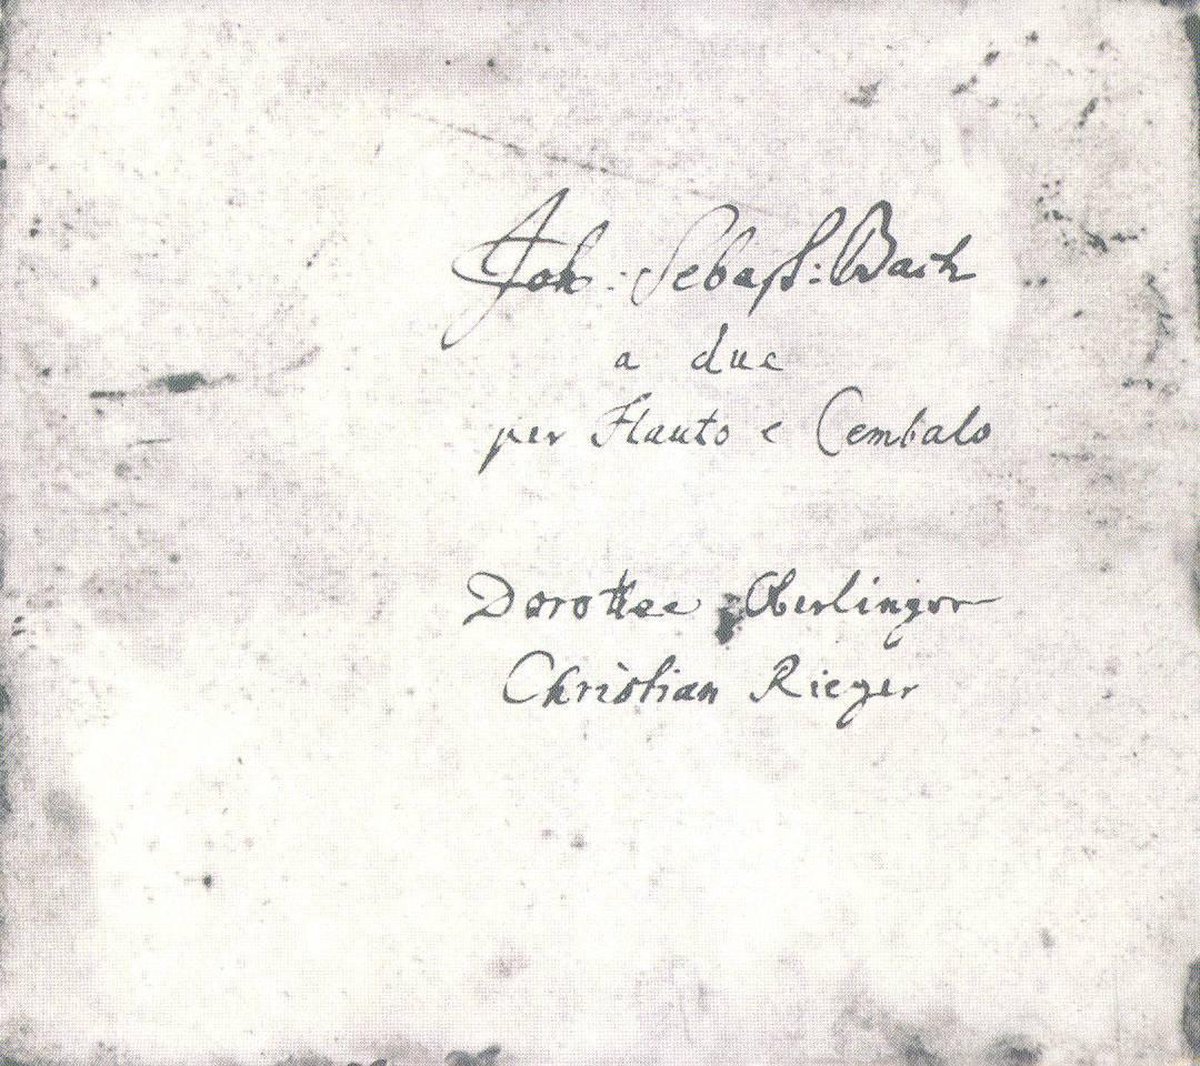 Joh: Sebaſt: Bach
a due
per Flauto e Cembalo
Dorothee Oberlinger
Christian Rieger